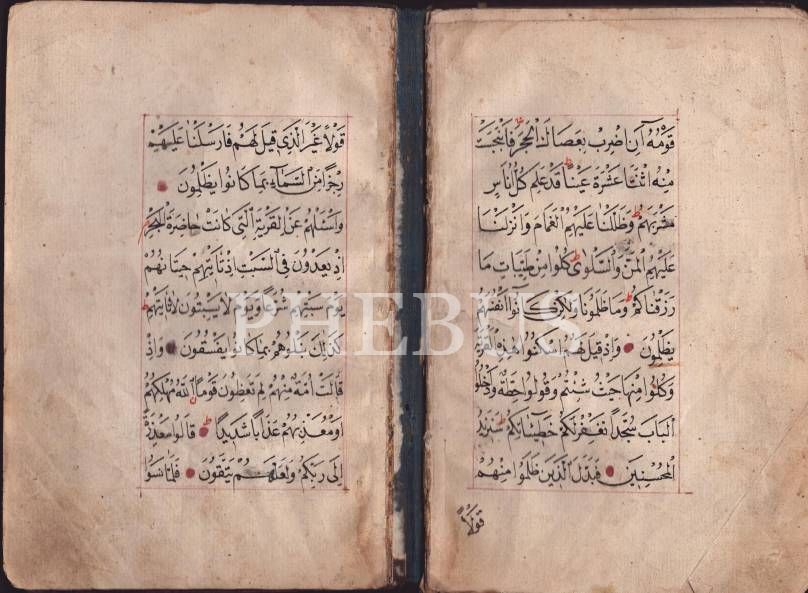 قَوْمُهُ أَنِ اضْرِبْ بِعَصَاكَ الْحَجَرَ فَانْبَجَسَتْ
مِنْهُ اثْنَتَا عَشْرَةَ عَيْنًا قَدْ عَلِمَ كُلُّ أُنَاسٍ
مَشْرَبَهُمْ وَظَلَّلْنَا عَلَيْهِمُ الْغَمَامَ وَأَنْزَلْنَا
عَلَيْهِمُ الْمَنَّ وَالسَّلْوَى كُلُوا مِنْ طَيِّبَاتِ مَا
رَزَقْنَاكُمْ وَمَا ظَلَمُونَا وَلَكِنْ كَانُوا أَنْفُسَهُمْ
يَظْلِمُونَ وَإِذْ قِيلَ لَهُمُ اسْكُنُوا هَذِهِ الْقَرْيَةَ
وَكُلُوا مِنْهَا حَيْثُ شِئْتُمْ وَقُولُوا حِطَّةٌ وَادْخُلُوا
الْبَابَ سُجَّدًا نَغْفِرْ لَكُمْ خَطِيئَاتِكُمْ سَنَزِيدُ
الْمُحْسِنِينَ فَبَدَّلَ الَّذِينَ ظَلَمُوا مِنْهُمْ
قَوْلًا
قَوْلًا غَيْرَ الَّذِي قِيلَ لَهُمْ فَأَرْسَلْنَا عَلَيْهِمْ
رِجْزًا مِنَ السَّمَاءِ بِمَا كَانُوا يَظْلِمُونَ
وَاسْئَلْهُمْ عَنِ الْقَرْيَةِ الَّتِي كَانَتْ حَاضِرَةَ الْبَحْرِ
إِذْ يَعْدُونَ فِي السَّبْتِ إِذْ تَأْتِيهِمْ حِيتَانُهُمْ
يَوْمَ سَبْتِهِمْ شُرَّعًا وَيَوْمَ لَا يَسْبِتُونَ لَا تَأْتِيهِمْ
كَذَلِكَ نَبْلُوهُمْ بِمَا كَانُوا يَفْسُقُونَ وَإِذْ
قَالَتْ أُمَّةٌ مِنْهُمْ لِمَ تَعِظُونَ قَوْمًا اللَّهُ مُهْلِكُهُمْ
أَوْ مُعَذِّبُهُمْ عَذَابًا شَدِيدًا قَالُوا مَعْذِرَةً
إِلَى رَبِّكُمْ وَلَعَلَّهُمْ يَتَّقُونَ فَلَمَّا نَسُوا
PHEBUS